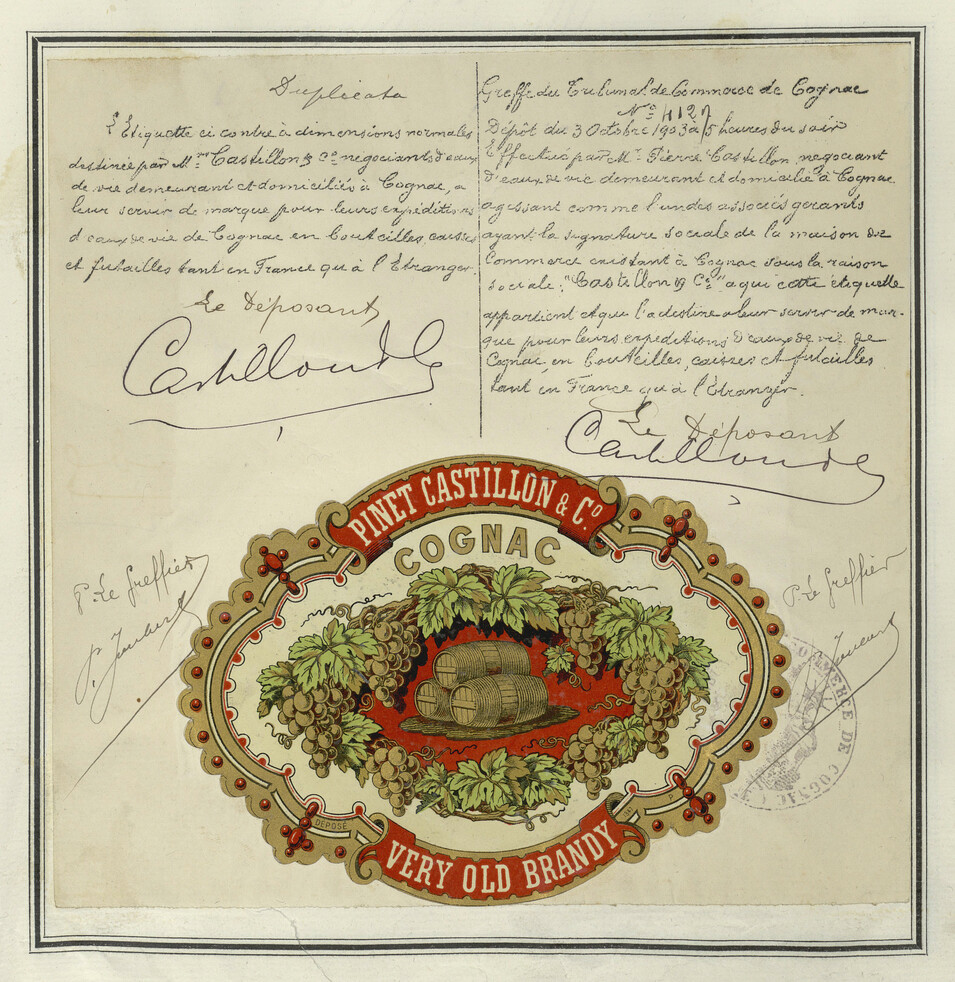 Duplicata
L'Etiquette ci contre à dimensions normales
destinée par Mr Castillon & Co negociants d'eaux
de vie demeurant et domiciliés à Cognac, a
leur servir de marque pour leurs expéditions
d'eaux de vie de Cognac en bouteilles, caisses
et futailles tant en France qu'à l'Etranger.
Le Déposant
Castillon & Co
Greffe du Tribunal de Commerce de Cognac
No 4127
Dépôt du 3 Octobre 1903 à 5 heures du soir
Effectué par Mr Pierre Castillon, negociant
d'eaux de vie demeurant et domicilié à Cognac
agissant comme l'un des associés gerants
ayant la signature sociale de la maison de
Commerce existant à Cognac sous la raison
sociale: "Castillon & Co" a qui cette étiquette
appartient et qui l'a destine a leur servir de mar-
que pour leurs expeditions d'eaux de vie de
Cognac, en bouteilles, caisses et futailles
tant en France qu'à l'Etranger.
Le Déposant
Castillon & Co
P. Le Greffier
P. Le Greffier
PINET CASTILLON & Co.
COGNAC
DÉPOSÉ
VERY OLD BRANDY
COMMERCE DE COGNAC